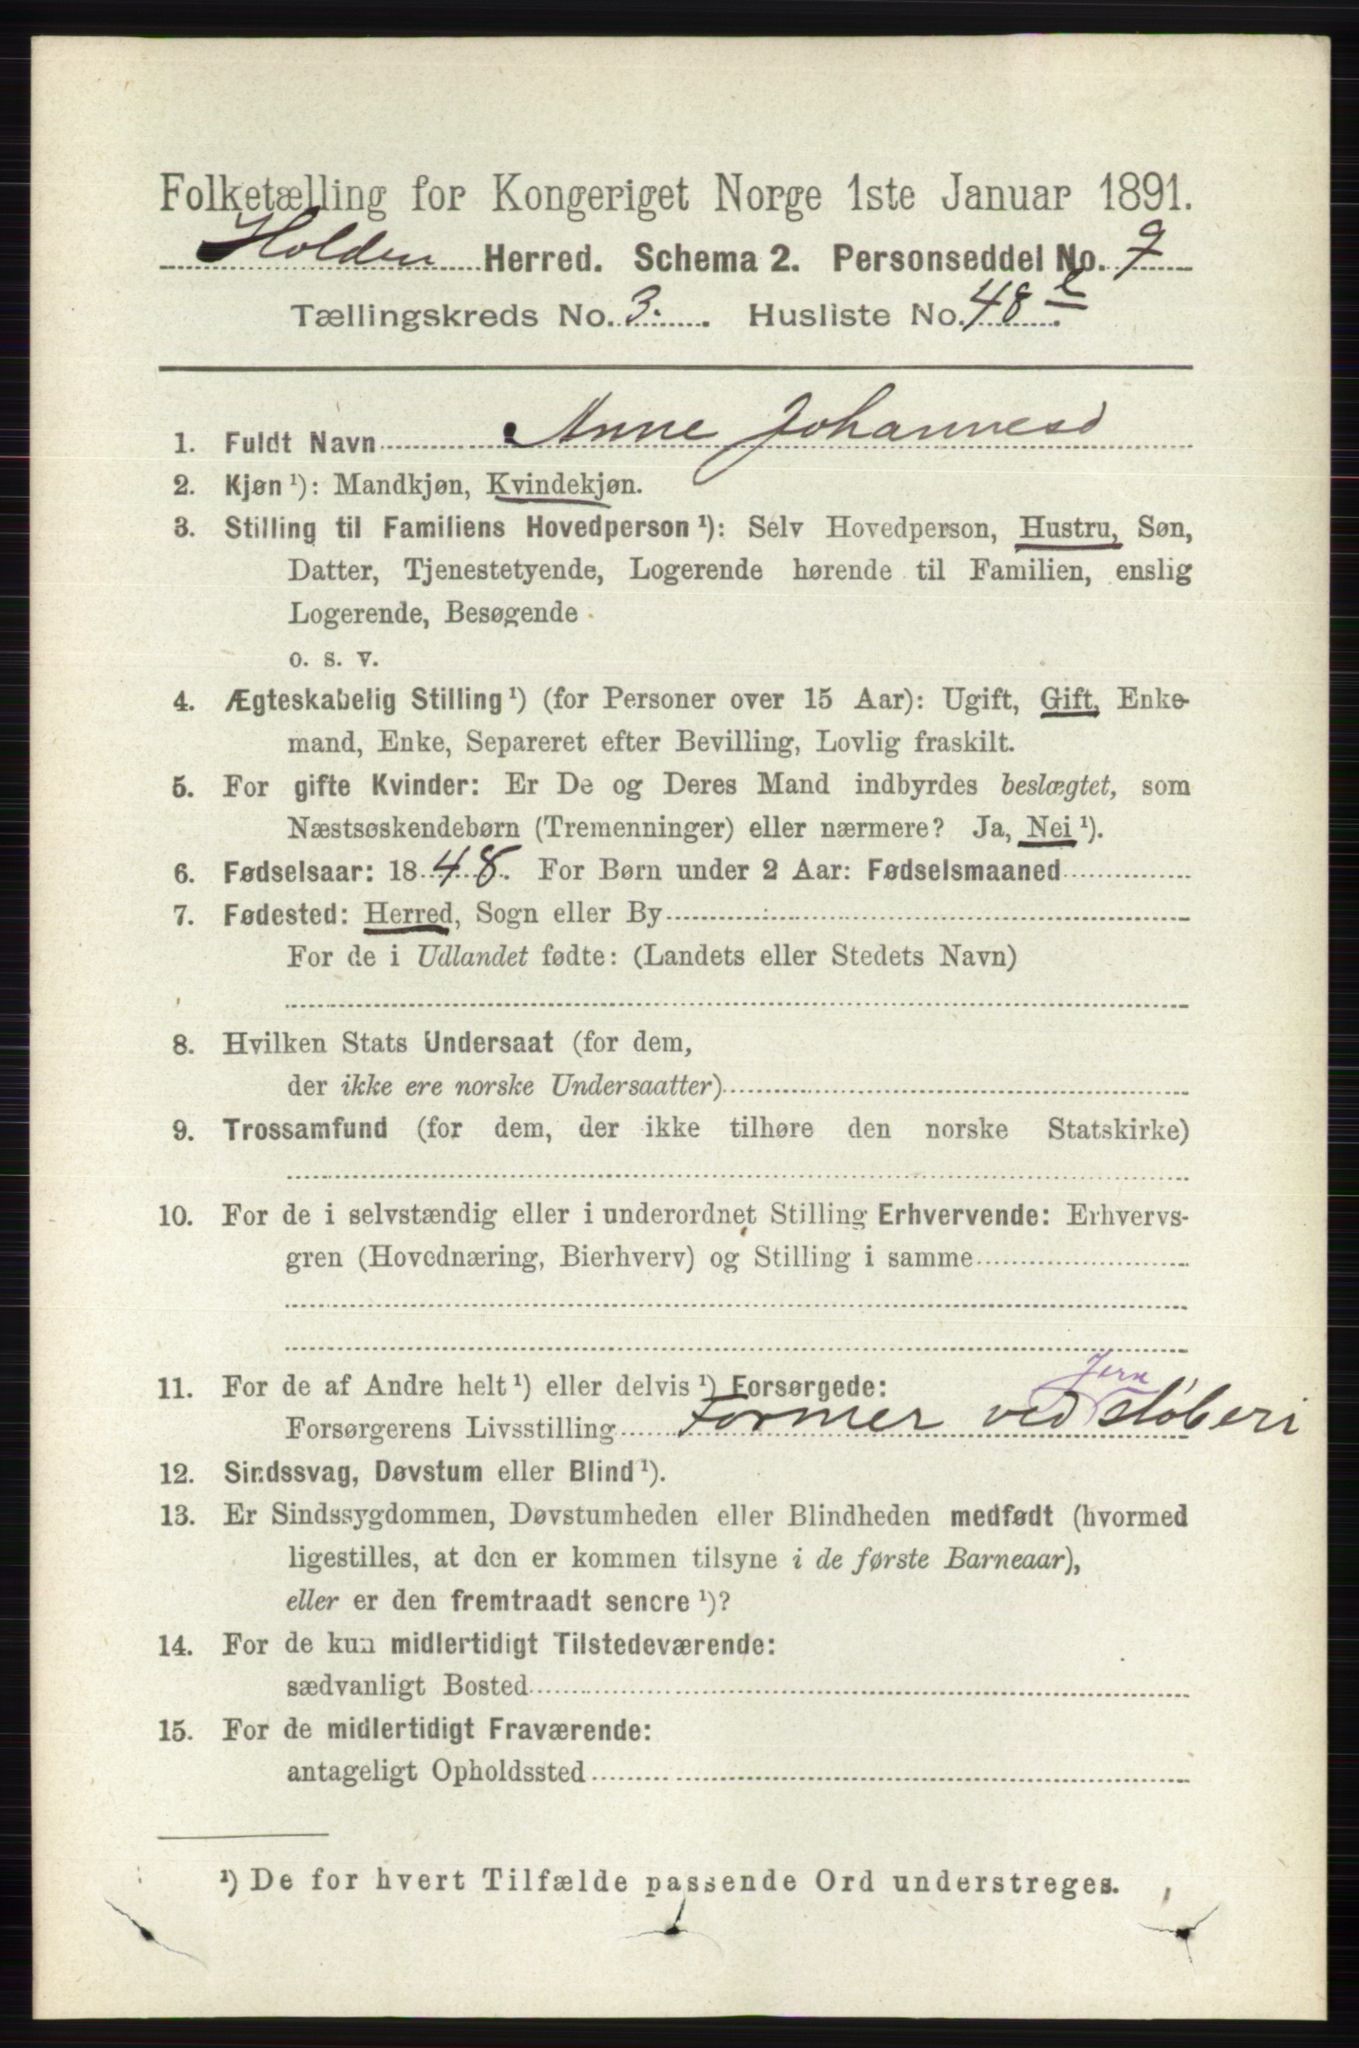 Folketælling for Kongeriget Norge 1ste Januar 1891.
Holden Herred. Schema 2. Personseddel No. 9
Tællingskreds No. 3. Husliste No. 48
1. Fuldt Navn Anne Johannesd
2. Kjøn ¹): Mandkjøn, Kvindekjøn.
3. Stilling til Familiens Hovedperson ¹): Selv Hovedperson, Hustru, Søn,
Datter, Tjenestetyende, Logerende hørende til Familien, enslig
Logerende, Besøgende
o. s. v.
4. Ægteskabelig Stilling ¹) (for Personer over 15 Aar): Ugift, Gift, Enke-
mand, Enke, Separeret efter Bevilling, Lovlig fraskilt.
5. For gifte Kvinder: Er De og Deres Mand indbyrdes beslægtet, som
Næstsøskendebørn (Tremenninger) eller nærmere? Ja, Nei ¹).
6. Fødselsaar: 1848. For Børn under 2 Aar: Fødselsmaaned
7. Fødested: Herred, Sogn eller By
For de i Udlandet fødte: (Landets eller Stedets Navn)
8. Hvilken Stats Undersaat (for dem,
der ikke ere norske Undersaatter)
9. Trossamfund (for dem, der ikke tilhøre den norske Statskirke)
10. For de i selvstændig eller i underordnet Stilling Erhvervende: Erhvervs-
gren (Hovednæring, Bierhverv) og Stilling i samme
11. For de af Andre helt ¹) eller delvis ¹) Forsørgede:
Jern
Forsørgerens Livsstilling Former ved støberi
12. Sindssvag, Døvstum eller Blind ¹).
13. Er Sindssygdommen, Døvstumheden eller Blindheden medfødt (hvormed
ligestilles, at den er kommen tilsyne i de første Barneaar),
eller er den fremtraadt senere ¹)?
14. For de kun midlertidigt Tilstedeværende:
sædvanligt Bosted
15. For de midlertidigt Fraværende:
antageligt Opholdssted
¹) De for hvert Tilfælde passende Ord understreges.